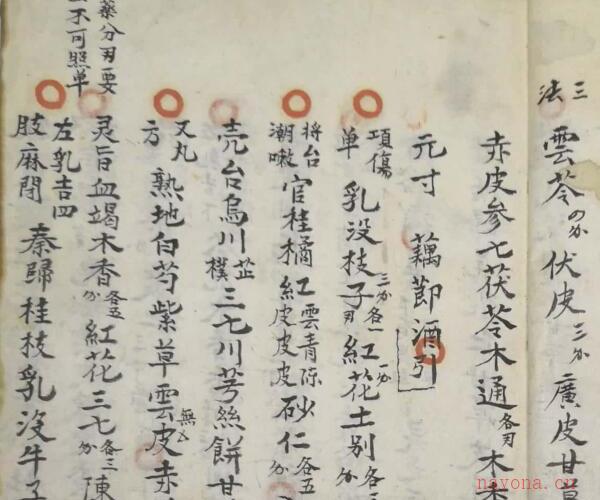 三法
雲苓 伏皮三 廣皮甘
赤皮參七茯苓木通各 木
元寸 藕節酒引
項傷單 乳没枝子 各一紅花 土别各
将台潮嗽 官桂橘紅 雲青陈皮皮皮 砂仁各五
売台烏川芷樸三七川芎絲餅甘
又丸方 熟地白芍紫草雲皮赤
灵旨血竭木香各五 紅花三七各三 陳
左乳吉四肢麻閉 秦歸桂枝乳没牛子
藥分 要不可照单
nayona.cn